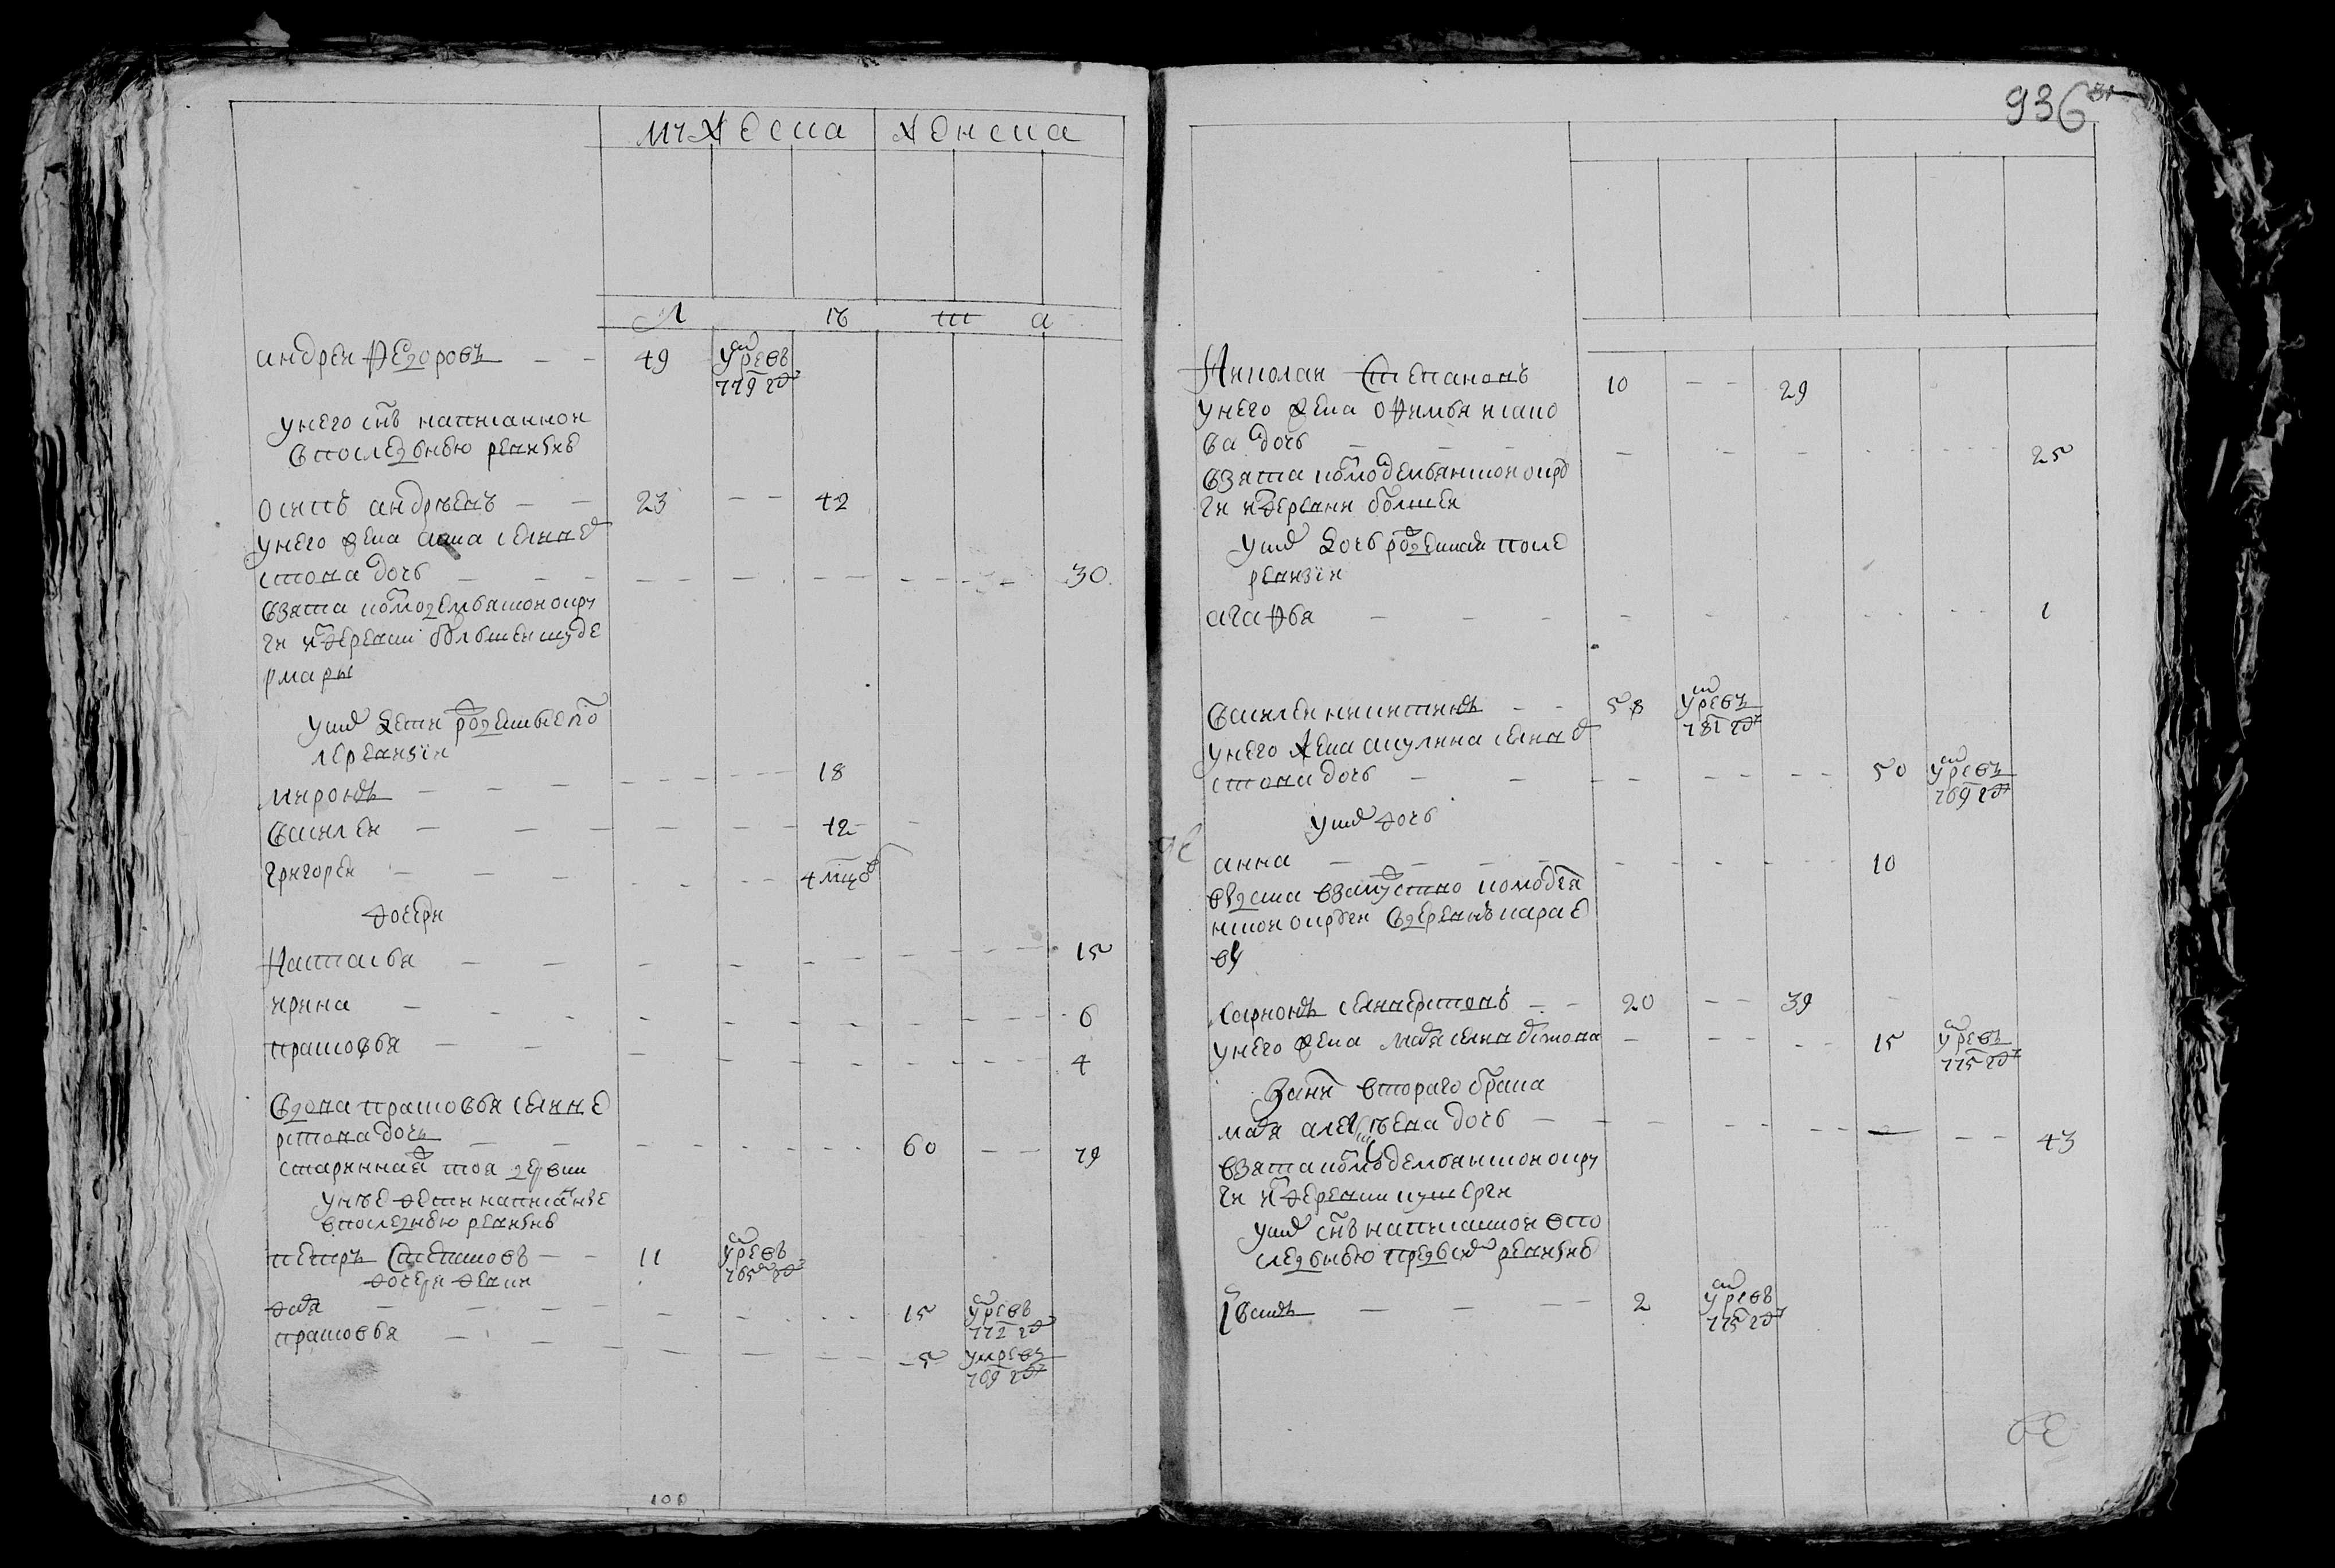 мужеска женска
л ъ т а
андреи федоровъ — — 49 умре въ 779 году
у него снъ написанной
в последнюю ревизию
осипъ андрѣевъ — — 23 — — 42
у него жена анна
стова дочь — — — 30
взята комодемьянской окру
ги из деревни большей шуде
рмары
у них дети рожденные по
сле ревизiи
миронъ — — — 18
василеи — — — 12
григореи — — — 4 мцов
дочери
настасья — — — 15
ирина — — — 6
прасковья — — — 4
вдова прасковья
рстова дочь — — 60 — — 79
стариннаѧ тоя деревни
у нѣе дети написанные
в последнюю ревизию
петръ степановъ — — 11 умре въ 765 году
дочери девки
дарья — — — 15 умре въ 772 году
прасковья — — — 5 умре въ 769 году
100
936
николаи степановъ 10 — — 29
у него жена офимья исако
ва дочь — — — 25
взята комодемьянской окру
ги из деревни большей
у них дочь рожденная после
ревизiи
агафья — — — 1
василеи никитинъ — — 58 умре въ 781 году
у него жена акулина
стова дочь — — — 50 умре въ 769 году
у них дочь
анна — — — 10
выдана в замужство комодемья
нской округи в деревню карае
ву
ларионъ — — 20 — — 39
у него жена марья — — — 15 умре въ 775 году
За ним втораго брака
марья алексѣева дочь — — — 43
взята комодемьянской окру
ги из деревни кушерги
у них снъ написанной в по
следнюю пред сим ревизию
iванъ — — — 2 умре въ 775 году